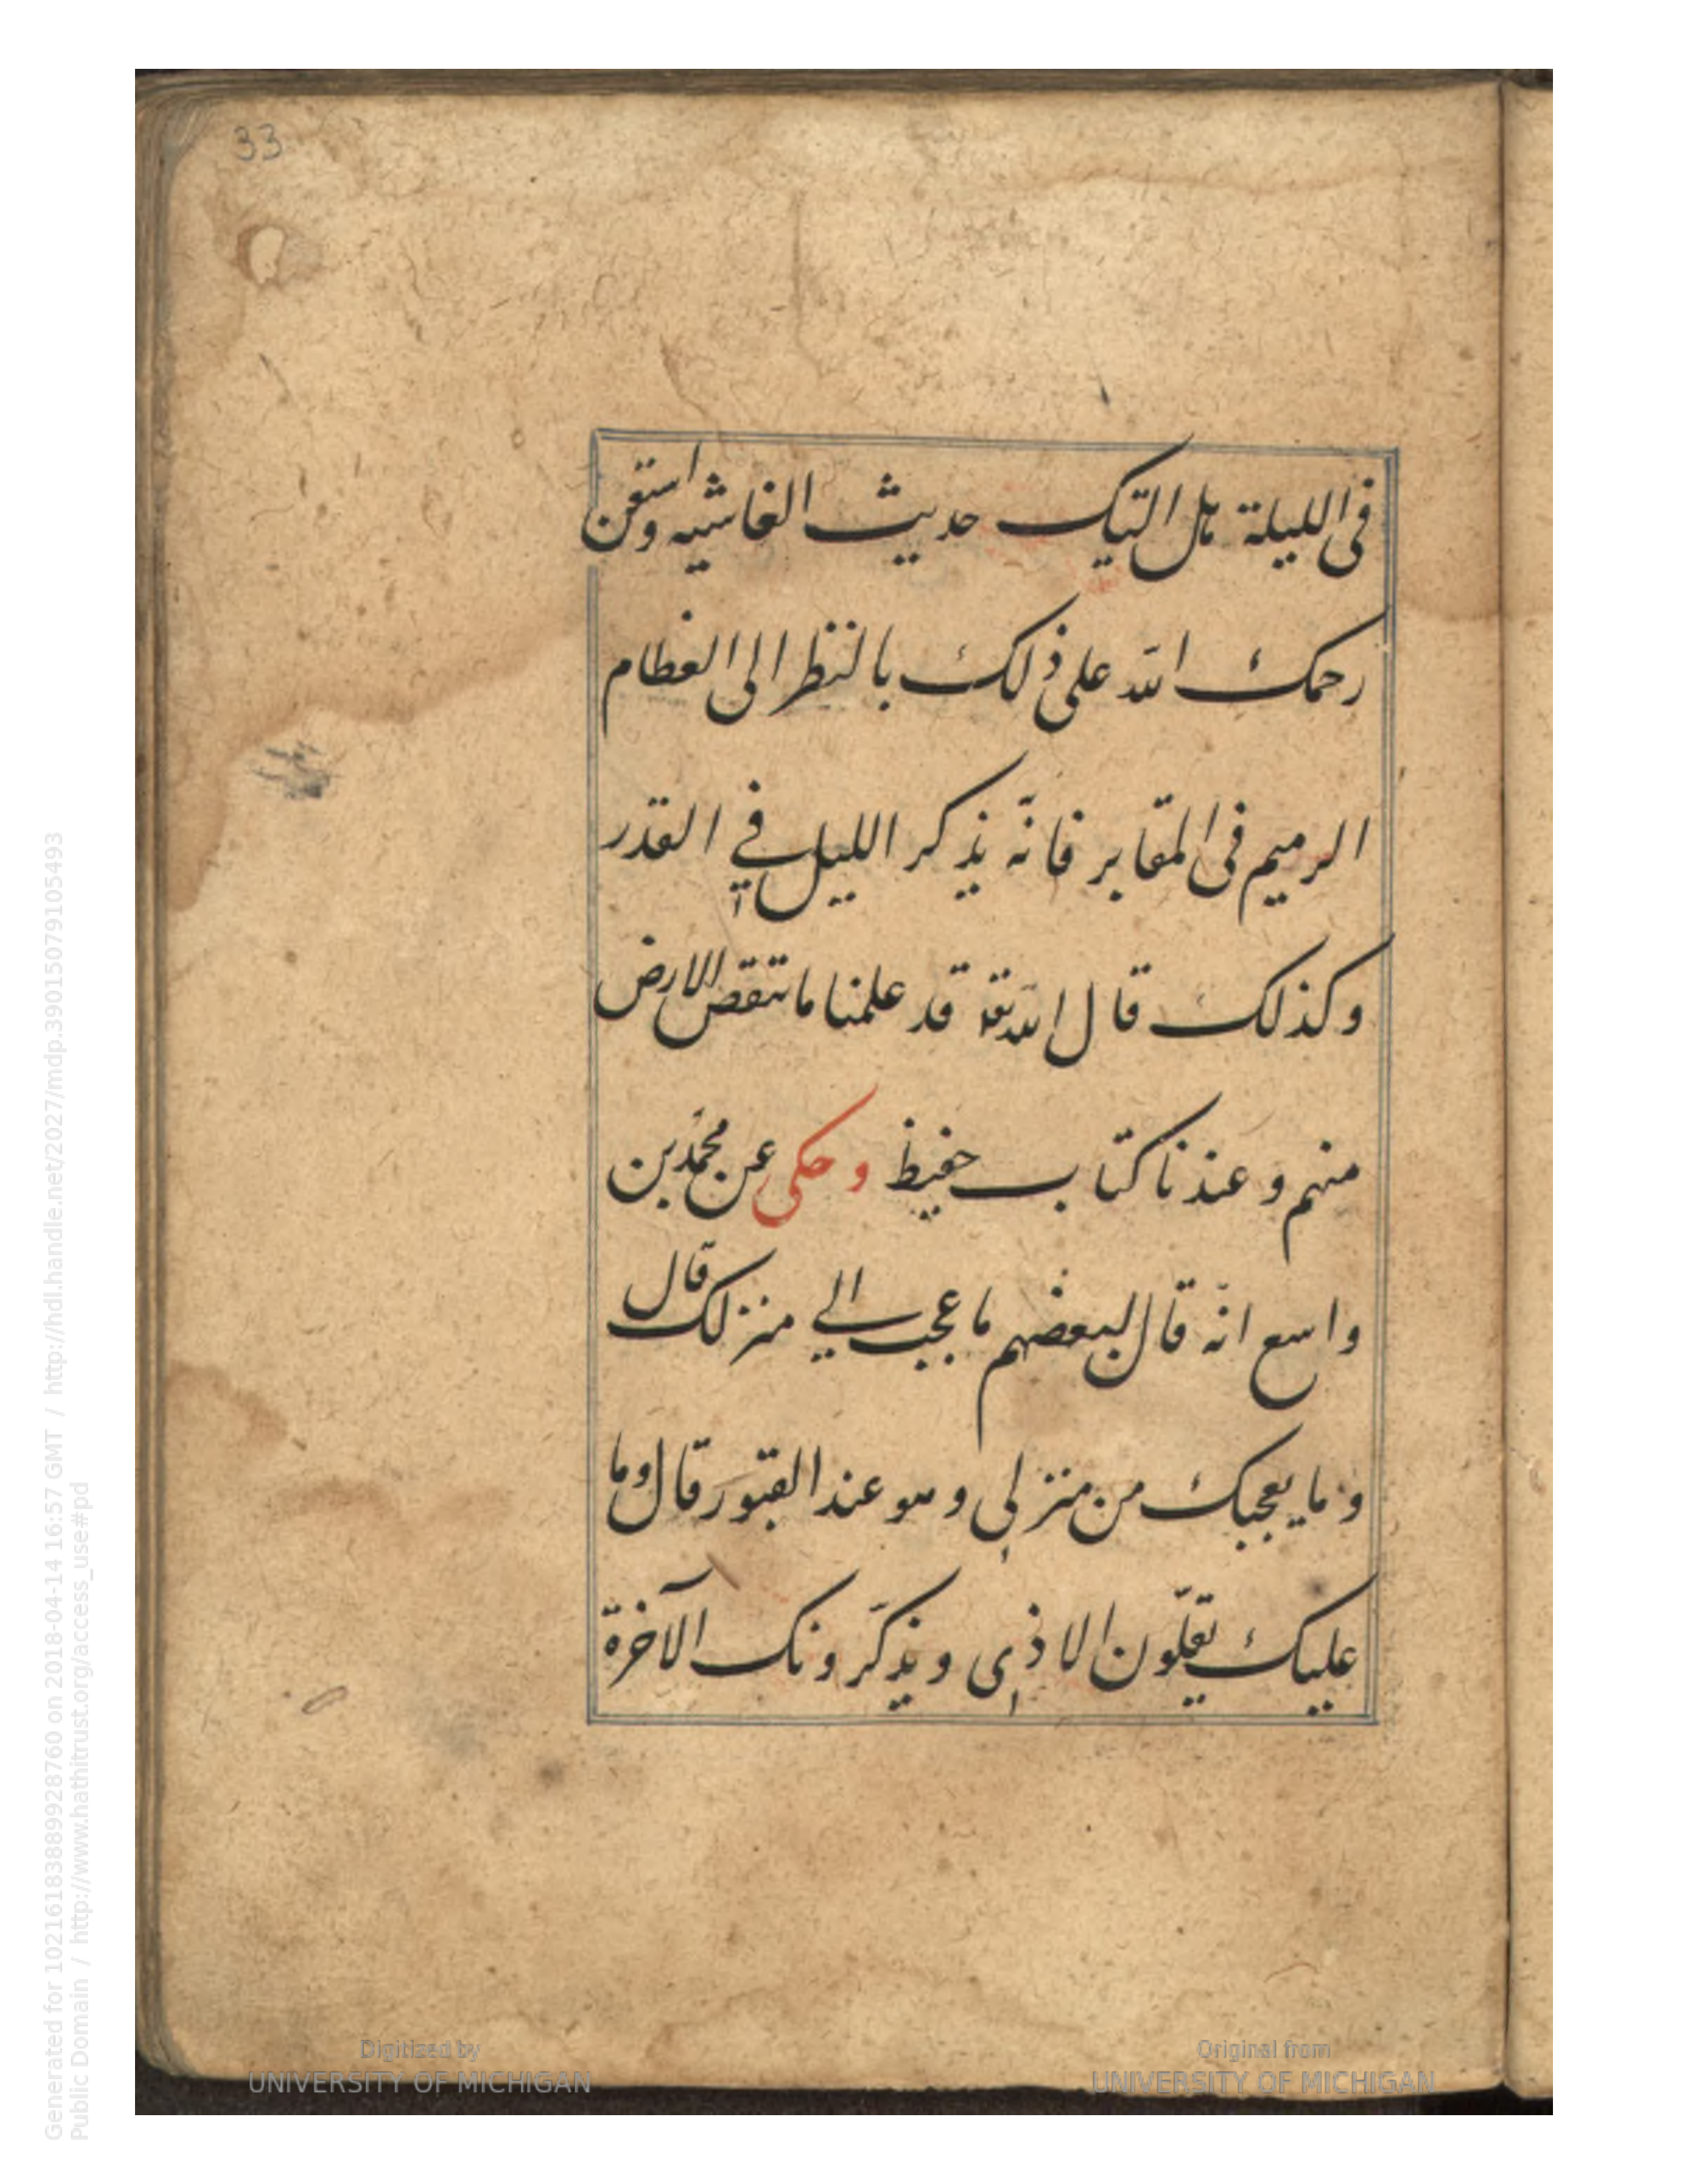 33
فی اللیلة هل اتیک حدیث الغاشیه واستعن
رحمک الله علی ذلک بالنظر الی العظام
الرمیم فی المقابر فانّه یذکر اللیل فی القدر
وکذلک قال الله تع قد علمنا ما تنقص الارض
منهم وعندنا کتاب حفیظ وحکی عن محمد بن
واسع انّه قال لبعضهم ما عجب الی منزلک قال
وما یعجبک من منزلی وهو عند القبور قال وما
علیک یقلّون الاذی ویذکّرونک الآخرة
Digitized by
UNIVERSITY OF MICHIGAN
Original from
UNIVERSITY OF MICHIGAN
Generated for 1021618388998928760 on 2018-04-14 16:57 GMT / http://hdl.handle.net/2027/mdp.39015079105493
Public Domain / http://www.hathitrust.org/access_use#pd